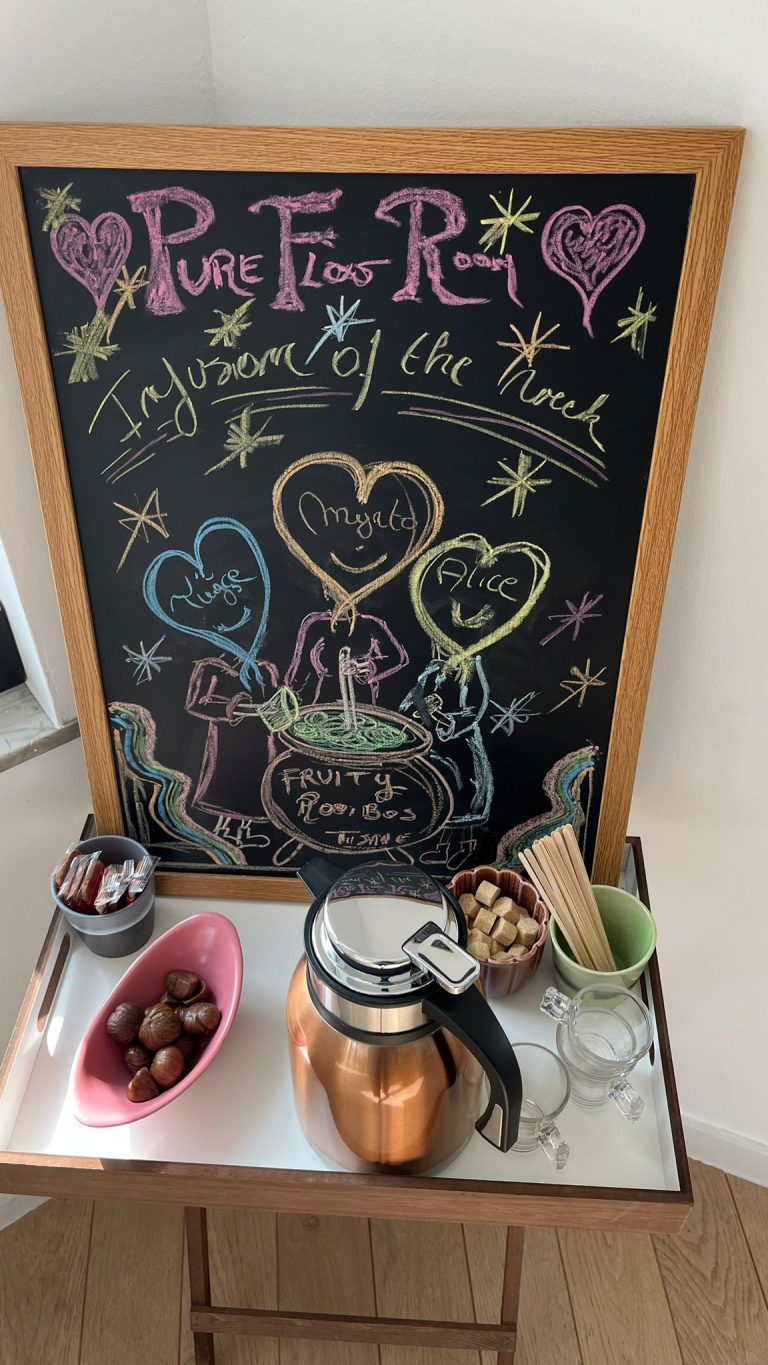 PURE FLOW ROOM
Infusion of the week
Myato
Alice
FRUITY
ROOIBOS
TISANE